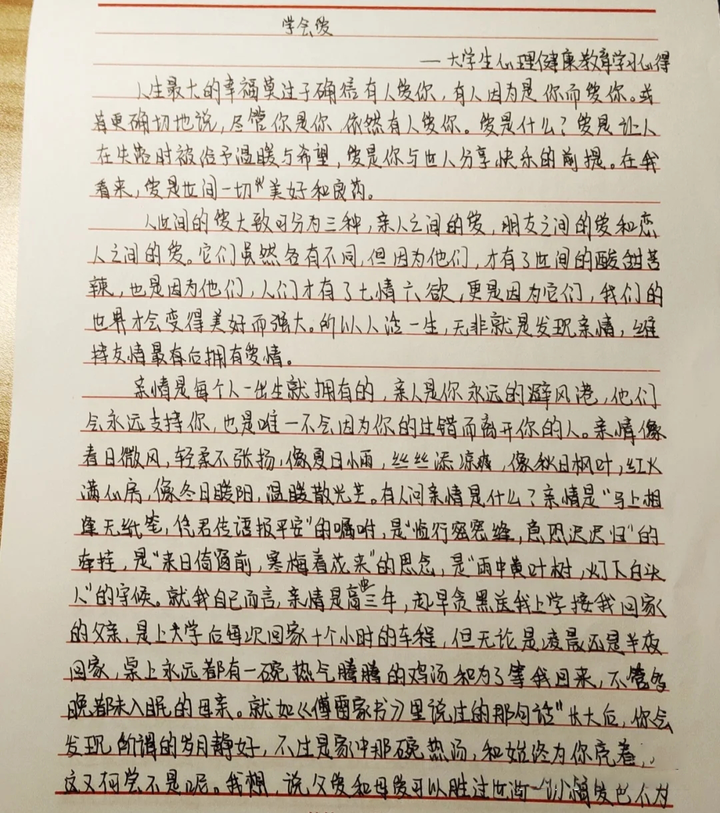 学会爱
——大学生心理健康教育学习心得
人生最大的幸福莫过于确信有人爱你，有人因为是你而爱你。或
者更确切地说，尽管你是你，依然有人爱你。爱是什么？爱是让人
在失落时被给予温暖与希望，爱是你与世人分享快乐的前提。在我
看来，爱是世间一切的美好和良药。
人世间的爱大致可分为三种，亲人之间的爱，朋友之间的爱和恋
人之间的爱。它们虽然各有不同，但因为他们，才有了世间的酸甜苦
辣，也是因为他们，人们才有了七情六欲，更是因为它们，我们的
世界才会变得美好而强大。所以人活一生，无非就是发现亲情，维
持友情最有后拥有爱情。
亲情是每个人一出生就拥有的，亲人是你永远的避风港，他们
会永远支持你，也是唯一不会因为你的过错而离开你的人。亲情像
春日微风，轻柔不张扬，像夏日小雨，丝丝添凉爽，像秋日枫叶，红火
满心房，像冬日暖阳，温暖散光芒。有人问亲情是什么？亲情是“马上相
逢无纸笔，凭君传语报平安”的嘱咐，是“临行密密缝，意恐迟迟归”的
牵挂，是“来日倚窗前，寒梅着花未”的思念，是“雨中黄叶树，灯下白头
人”的守候。就我自己而言，亲情是高中三年，起早贪黑送我上学接我回家
的父亲，是上大学后每次回家十个小时的车程，但无论是凌晨还是半夜
回家，桌上永远都有一碗热气腾腾的鸡汤和为了等我回来，不管多
晚都未入眠的母亲。就如《傅雷家书》里说过的那句话“长大后，你会
发现所谓的岁月静好，不过是家中那碗热汤，和始终为你亮着
这又何尝不是呢。我想，说父爱和母爱可以胜过世间一切